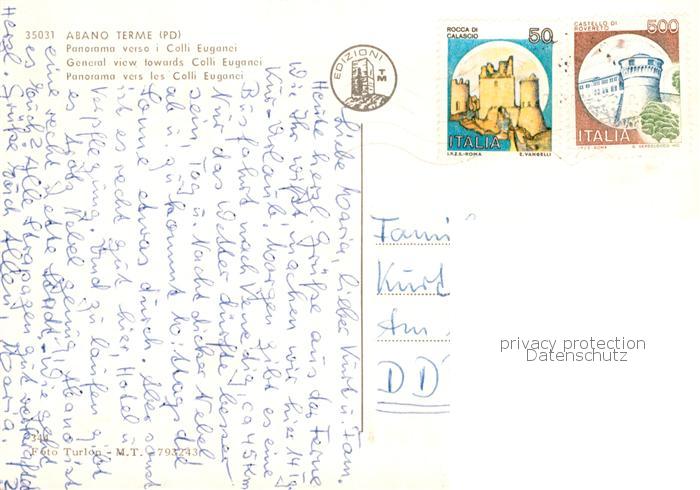 35031 ABANO TERME (PD)
Panorama verso i Colli Euganei
General view towards Colli Euganei
Panorama vers les Colli Euganei
EDIZIONI
TM
ROCCA DI
CALASCIO
50
ITALIA
I.P.Z.S.-ROMA E. VANGELLI
CASTELLO DI
ROVERETO
500
ITALIA
I.P.Z.S.-ROMA
Liebe Maria, liebe Kurt u. Fam.
Heute herzl. Grüße aus der Ferne
Wie Ihr wißt, machen wir hier 14 Tg
Kur-Urlaub. Morgen gibt es eine
Busfahrt nach Venedig, ca 45 km
Nur das Wetter dürfte besser
sein, Tag u. Nacht dicker Nebel
ab u. zu kommt mittags d
Sonne etwas durch. Aber sonst
ist es recht gut hier, Hotel u
Verpflegung. Und zu laufen gibt
es genug, Abano ist
eine recht nette Stadt. Wie geht
es Euch? Alle Strapazen gut
Herzl. Grüße Euch Allen, Maria.
Kurt
Am
DD
privacy protection
Datenschutz
344
Foto Turlon - M.T. - 793243